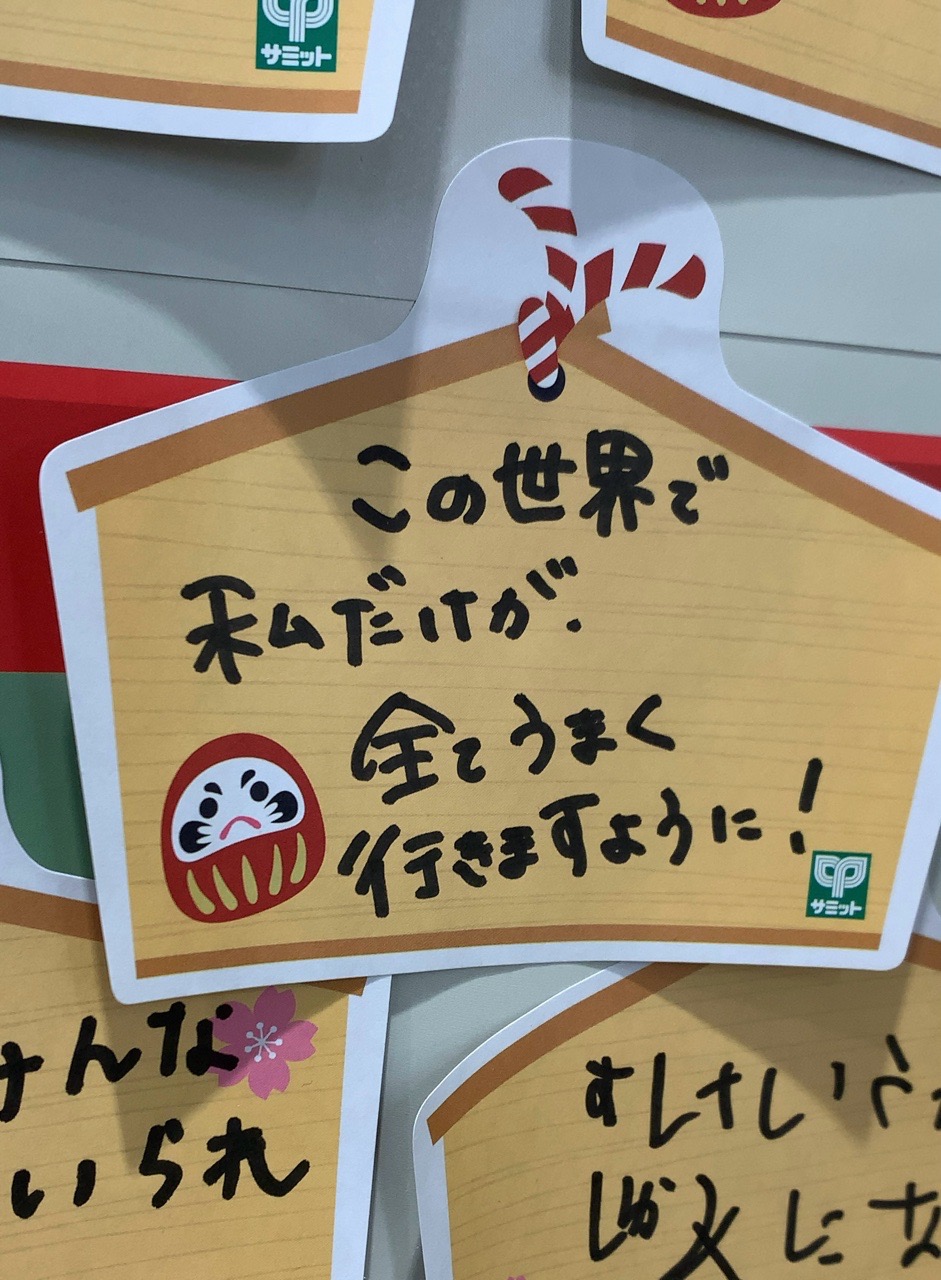 サミット
この世界で
私だけが.
全てうまく
行きますように!
サミット
んな
いられ